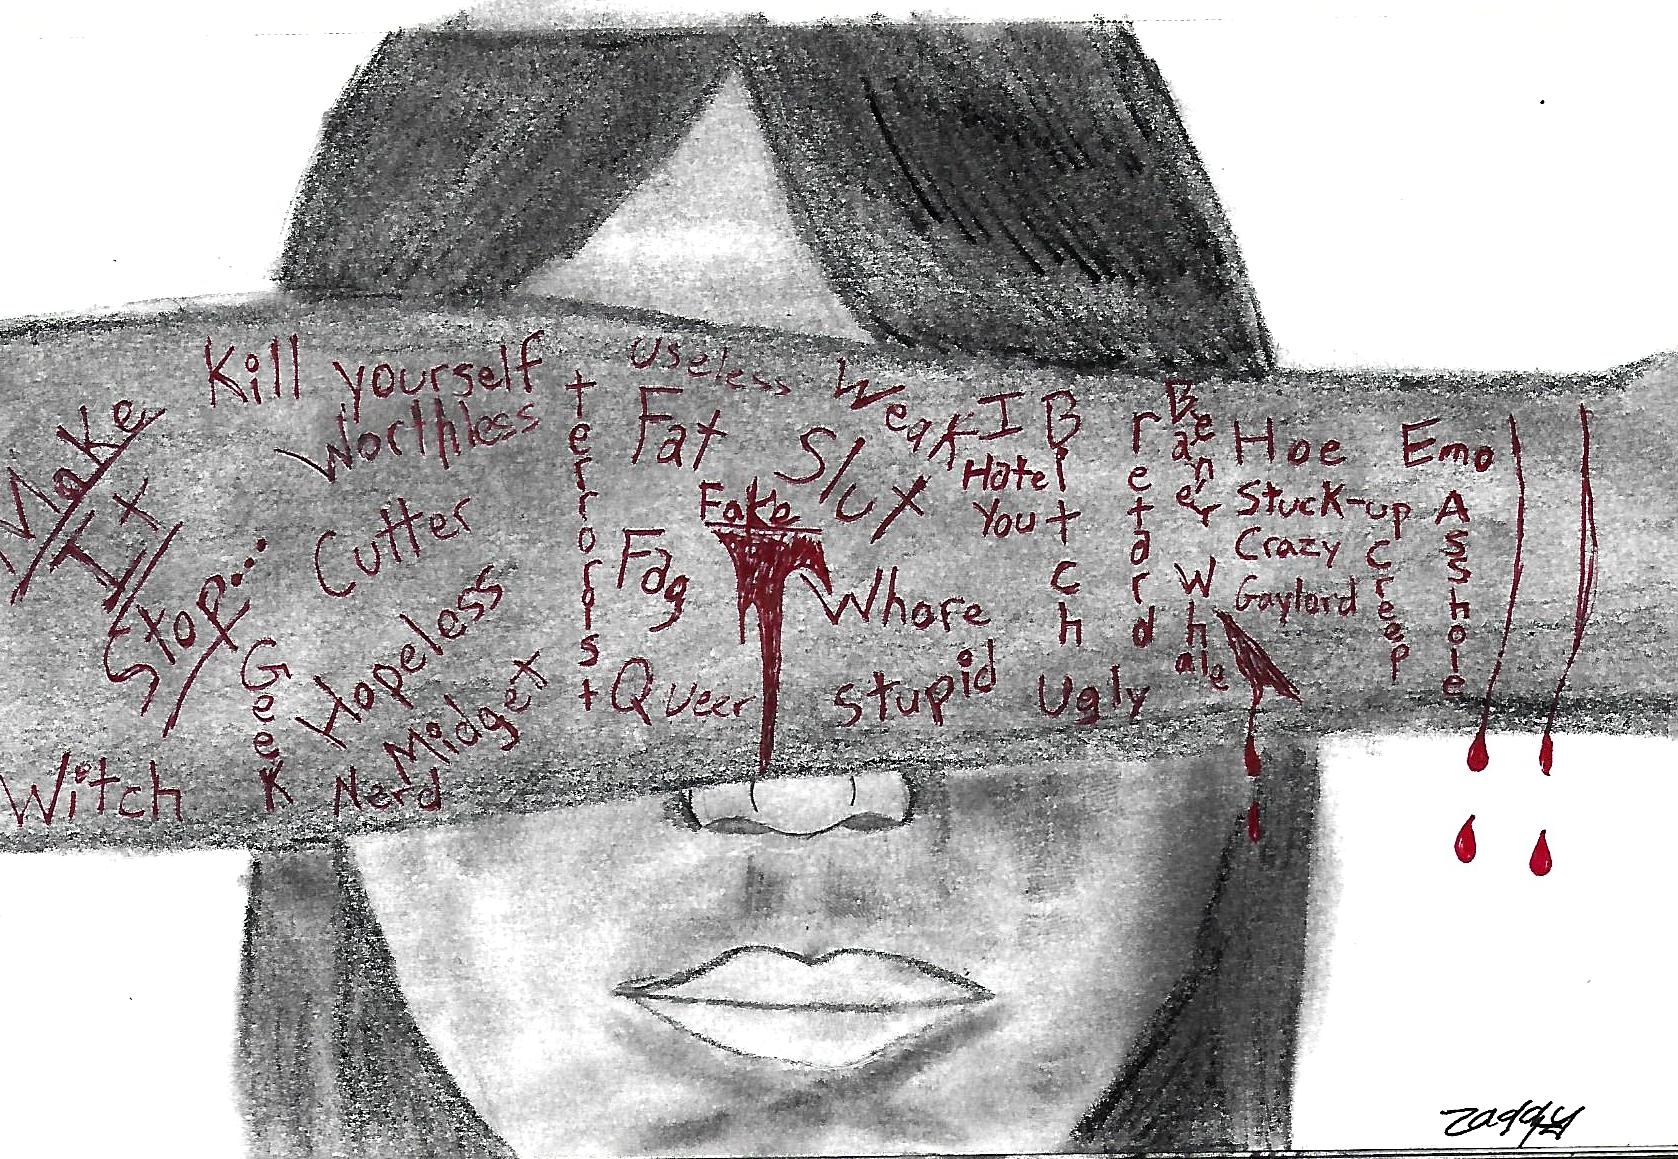 Make
It
Stop...
Witch
Kill yourself
Worthless
Cutter
Geek
Hopeless
Midget
Nerd
terrorist
useless
Fat
Fake
Fag
Queer
Weak
Slut
Whore
stupid
I
Hate
You
Bitch
Ugly
retard
Beaner
Whale
Hoe
Stuck-up
Crazy
Gaylord
creep
Emo
Asshole